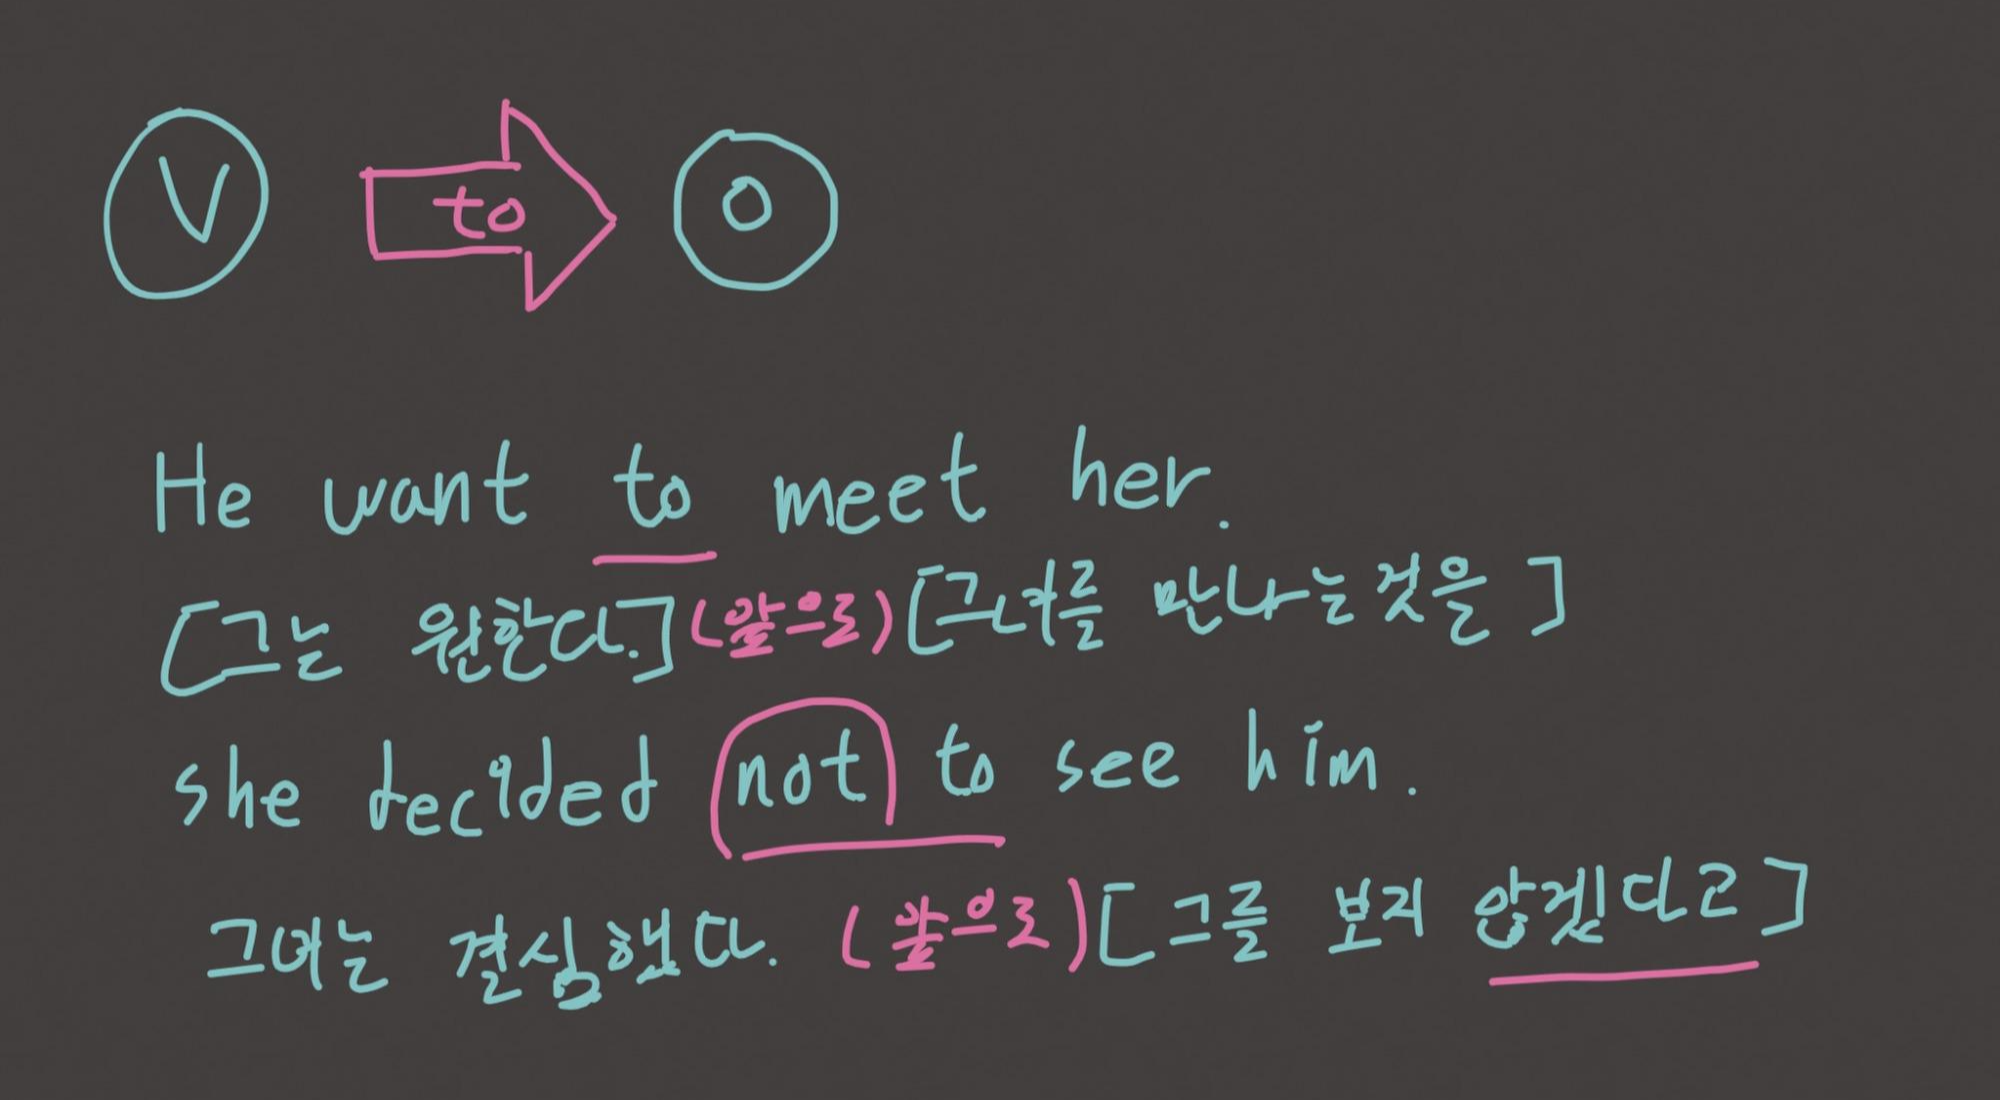 V to O
He want to meet her.
[그는 원한다.] (앞으로) [그녀를 만나는것을]
she decided not to see him.
그녀는 결심했다. (앞으로) [그를 보지 않겠다고]